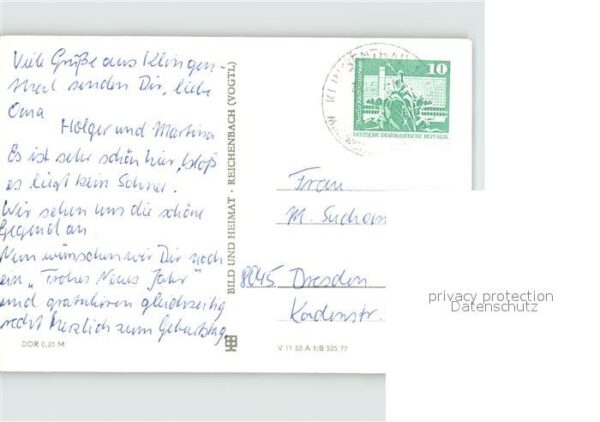 Viele Grüße aus Klingen-
thal senden Dir, liebe
Oma
Holger und Martina
Es ist sehr schön hier, bloß
es liegt kein Schnee.
Wir sehen uns die schöne
Gegend an.
Nun wünschen wir Dir noch
ein „Frohes Neues Jahr"
und gratulieren gleichzeitig
recht herzlich zum Geburtstag
DDR 0,25 M
BILD UND HEIMAT · REICHENBACH (VOGTL)
10
DEUTSCHE DEMOKRATISCHE REPUBLIK
Frau
M.
8045 Dresden
V 11 50 A 1/B 525/77
privacy protection
Datenschutz